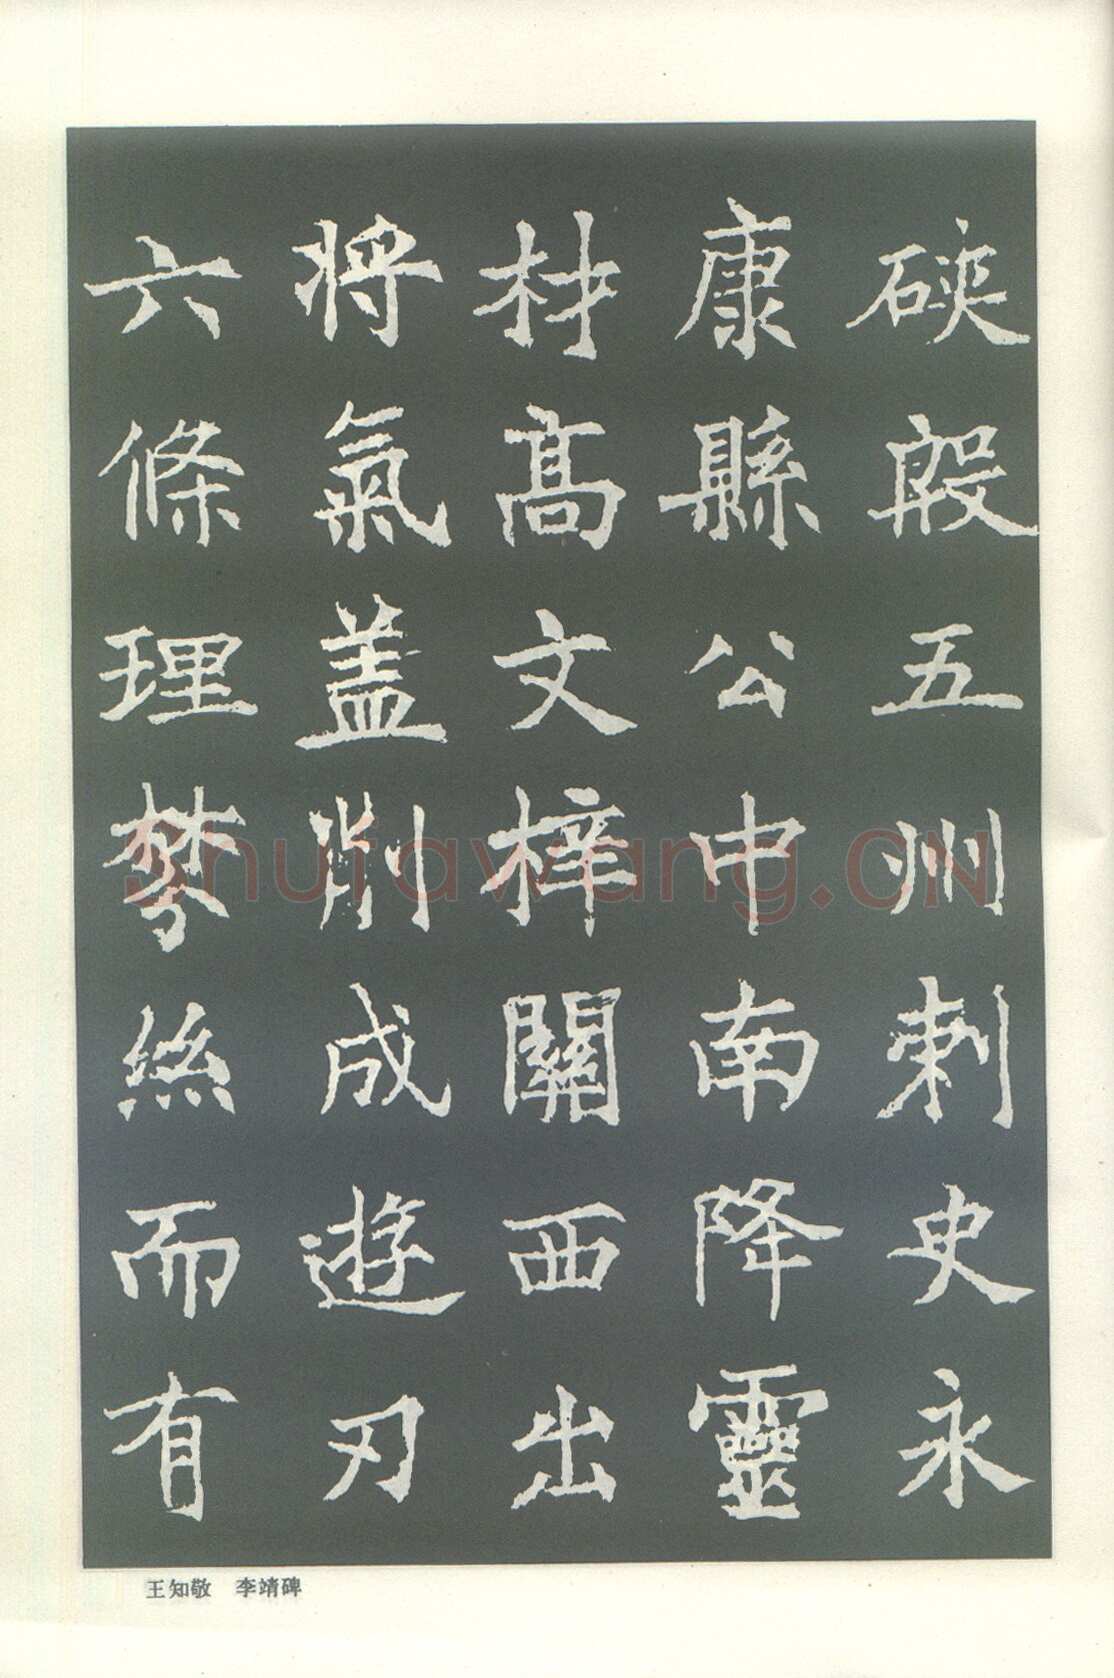 硤殷五州刺史永
康縣公中南降靈
材高文梓關西出
將氣蓋削成遊刃
六條理棼絲而有
王知敬 李靖碑
Shufawang.CN